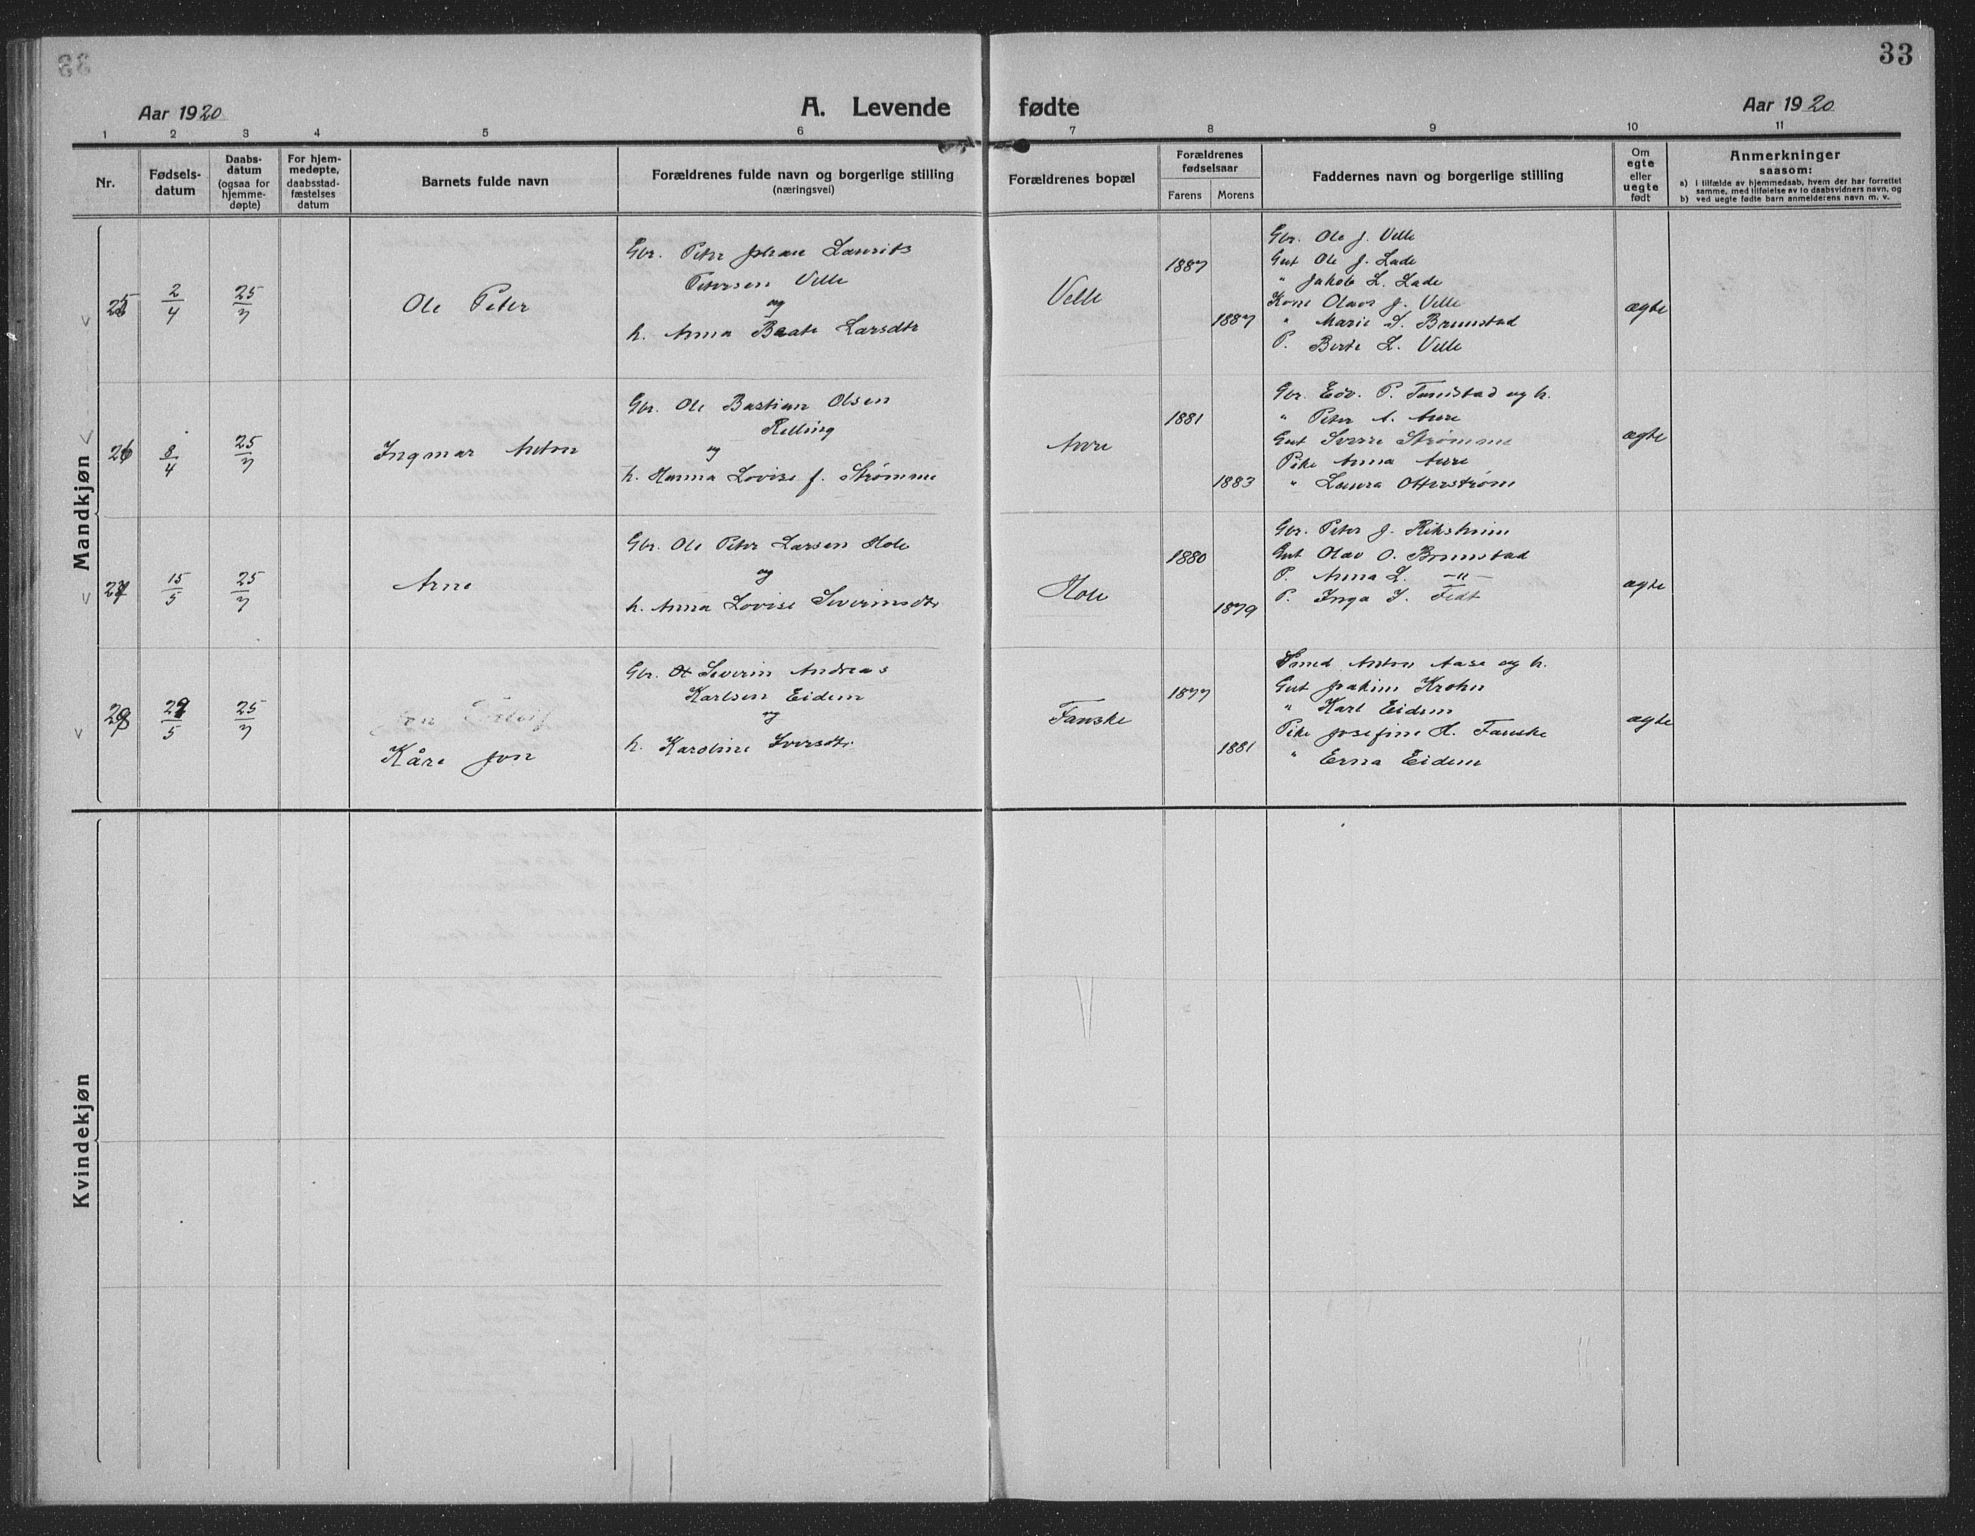 33
Aar 1920
A. Levende fødte
Aar 1920
1 2 3 4 5 6 7 8 9 10 11
Nr.
Fødsels-
datum
Daabs-
datum
(ogsaa for
hjemme-
døpte)
For hjem-
medøpte,
daabsstad-
fæstelses
datum
Barnets fulde navn
Forældrenes fulde navn og borgerlige stilling
(næringsvei)
Forældrenes bopæl
Forældrenes
fødselsaar
Farens Morens
Faddernes navn og borgerlige stilling
Om
egte
eller
uegte
født
Anmerkninger
saasom:
a) i tilfælde av hjemmedaab, hvem der har forrettet
samme, med tilføielse av to daabsvidners navn, og
b) ved uegte fødte barn anmelderens navn m. v.
Mandkjøn
25
2/4
25/7
Ole Peter
Gbr. Peter Johan Laurits
Petersen Velle
og
h. Anna Beate Larsdtr
Velle
1887
1887
Gbr. Ole J. Velle
Gut Ole J. Lade
" Jakob L. Lade
Kone Olava J. Velle
" Marie S. Brunstad
P. Berte L. Velle
ægte
26
8/4
25/7
Ingmar Anton
Gbr. Ole Bastian Olsen
Relling
og
h. Hanna Lovise f. Strømme
Aure
1881
1883
Gbr. Edv. P. Tandstad og h.
" Peter A. Aure
Gut Sverre Strømme
Pike Anna Aure
" Laura Otterstrøm
ægte
27
15/5
25/7
Arne
Gbr. Ole Peter Larsen Hole
og
h. Anna Lovise Severinsdtr
Hole
1880
1879
Gbr. Peter J. Riksheim
Gut Olav O. Brunstad
P. Anna L. -"-
P. Inga I. Fedt
ægte
28
5
25/7
Kåre Jon
Gbr. Severin Andreas
Karlsen Eidem
og
h. Karoline Iversdtr.
Fauske
1877
1881
Smed Anton Aase og h.
Gut Joakim Krohn
" Karl Eidem
Pike Josefine K. Fauske
" Erna Eidem
ægte
Kvindekjøn